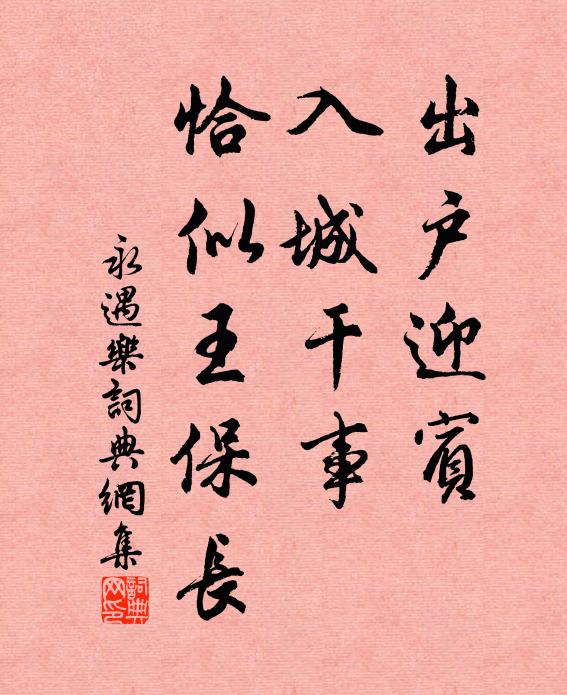 出户迎賓
入城干事
恰似王保長
永遇樂詞典網集
詞典網印